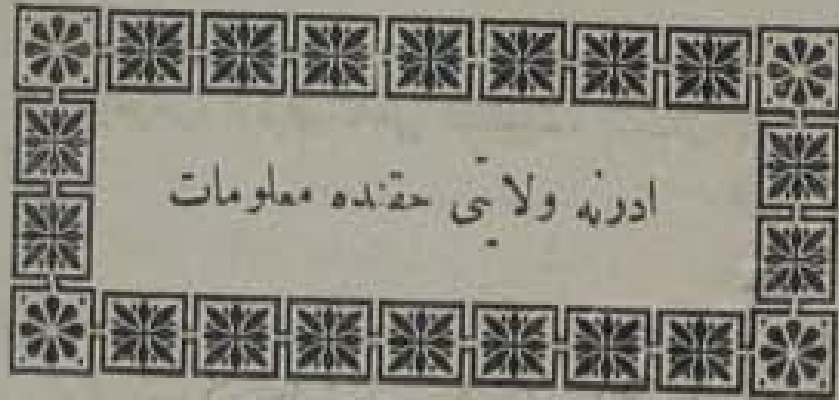 ادرنه ولايتى حقنده معلومات